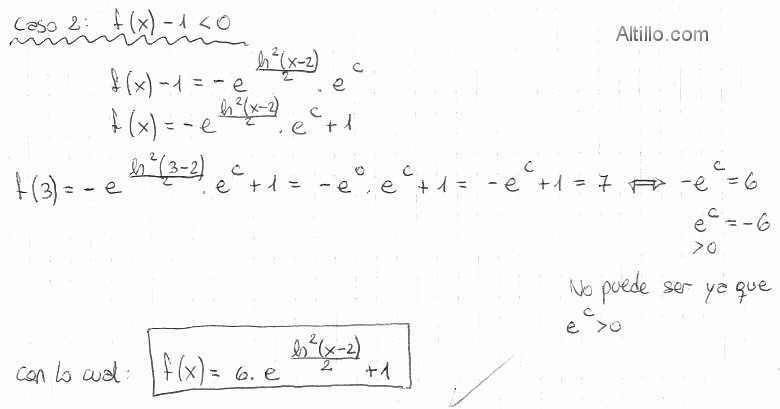 Caso 2: f(x) - 1 < 0
Altillo.com
f(x) - 1 = - e^(ln²(x-2)/2) . e^c
f(x) = - e^(ln²(x-2)/2) . e^c + 1
f(3) = - e^(ln²(3-2)/2) . e^c + 1 = - e^0 . e^c + 1 = - e^c + 1 = 7 ⟺ - e^c = 6
e^c = -6
>0
No puede ser ya que
e^c > 0
con lo cual: f(x) = 6. e^(ln²(x-2)/2) + 1